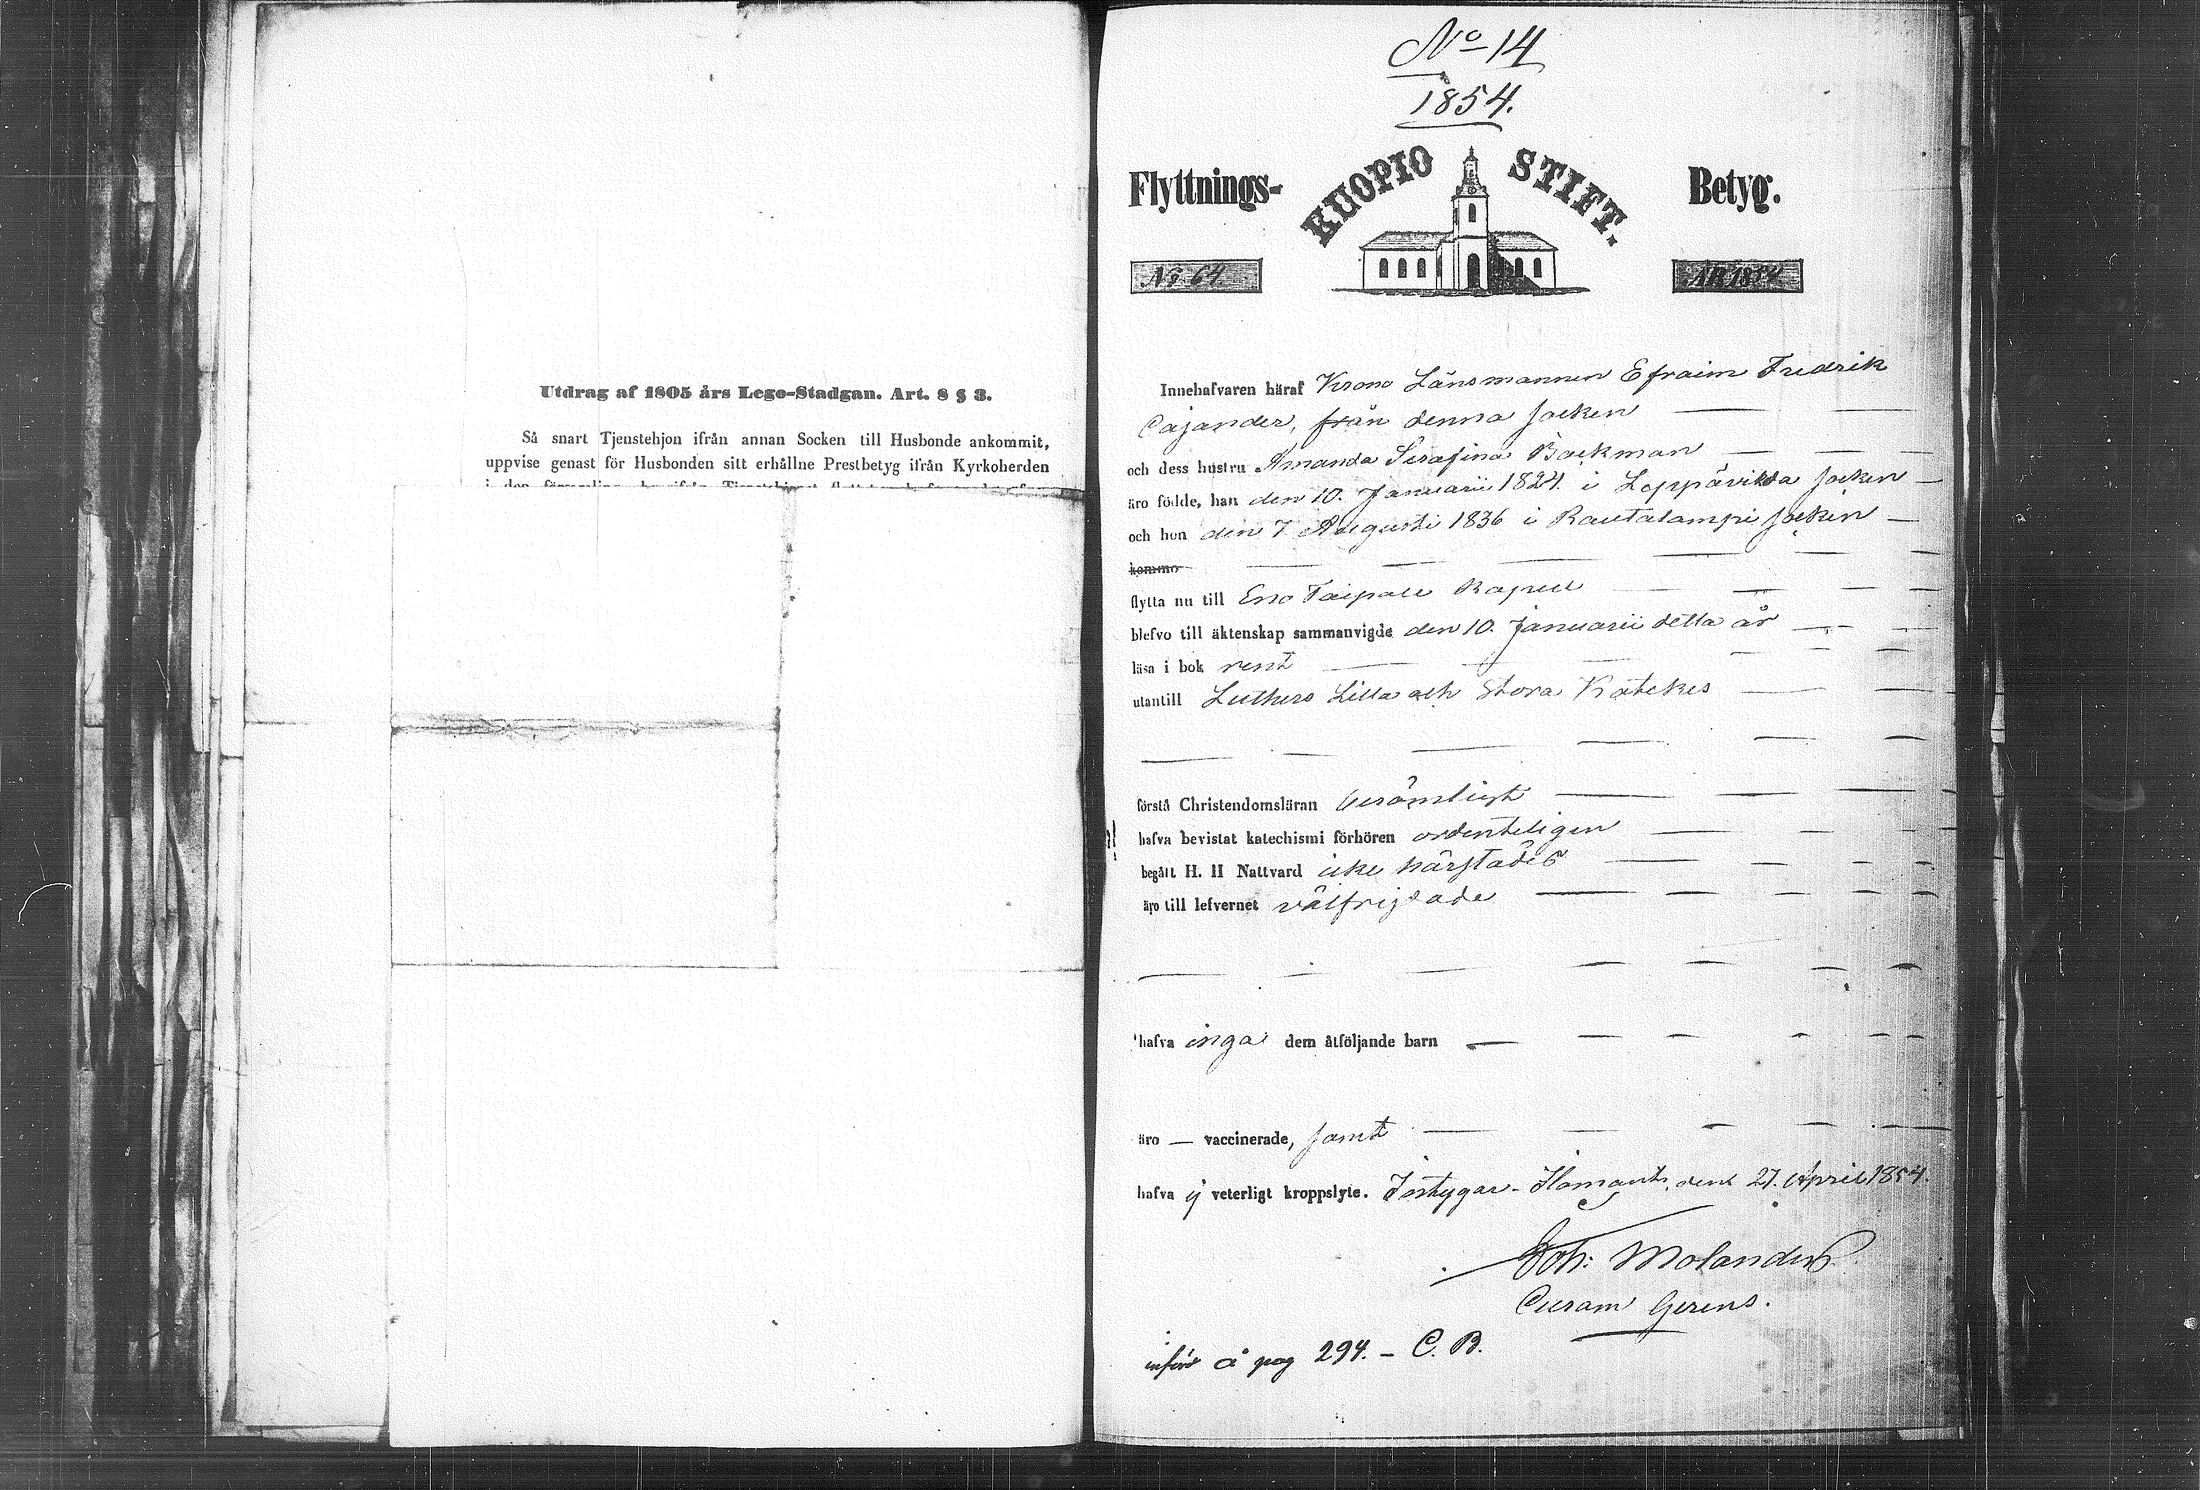 Utdrag af 1805 års Lego-Stadgan. Art. 8 § 3.
Så snart Tjenstehjon ifrån annan Socken till Husbonde ankommit,
uppvise genast för Husbonden sitt erhållne Prestbetyg ifrån Kyrkoherden
No 14
1854.
Flyttnings- KUOPIO STIFT. Betyg.
No 64. ÅR 1854
Innehafvaren häraf Krono Länsmannen Efraim Fredrik
Cajander, från denna socken
och dess hustru Amanda Serafina Backman
äro födde, han den 10. Januarii 1824. i Leppävirta socken
och hon den 7 Augusti 1836 i Rautalampi socken
komma
flytta nu till Eno Taipale Kapell
blefvo till äktenskap sammanvigde den 10. Januarii detta år
läsa i bok rent
utantill Luthers Lilla och Stora Katekes
förstå Christendomsläran berömligt
hafva bevistat katechismi förhören ordenteligen
begått H. H Nattvard icke härstädes
äro till lefvernet välfrejdade
hafva inga dem åtföljande barn
äro — vaccinerade, samt
hafva ej veterligt kroppslyte. Intygar. Ilomants, den 27. April 1854.
Joh: Molander
Curam Gerens.
införd å pag 294. - C. B.